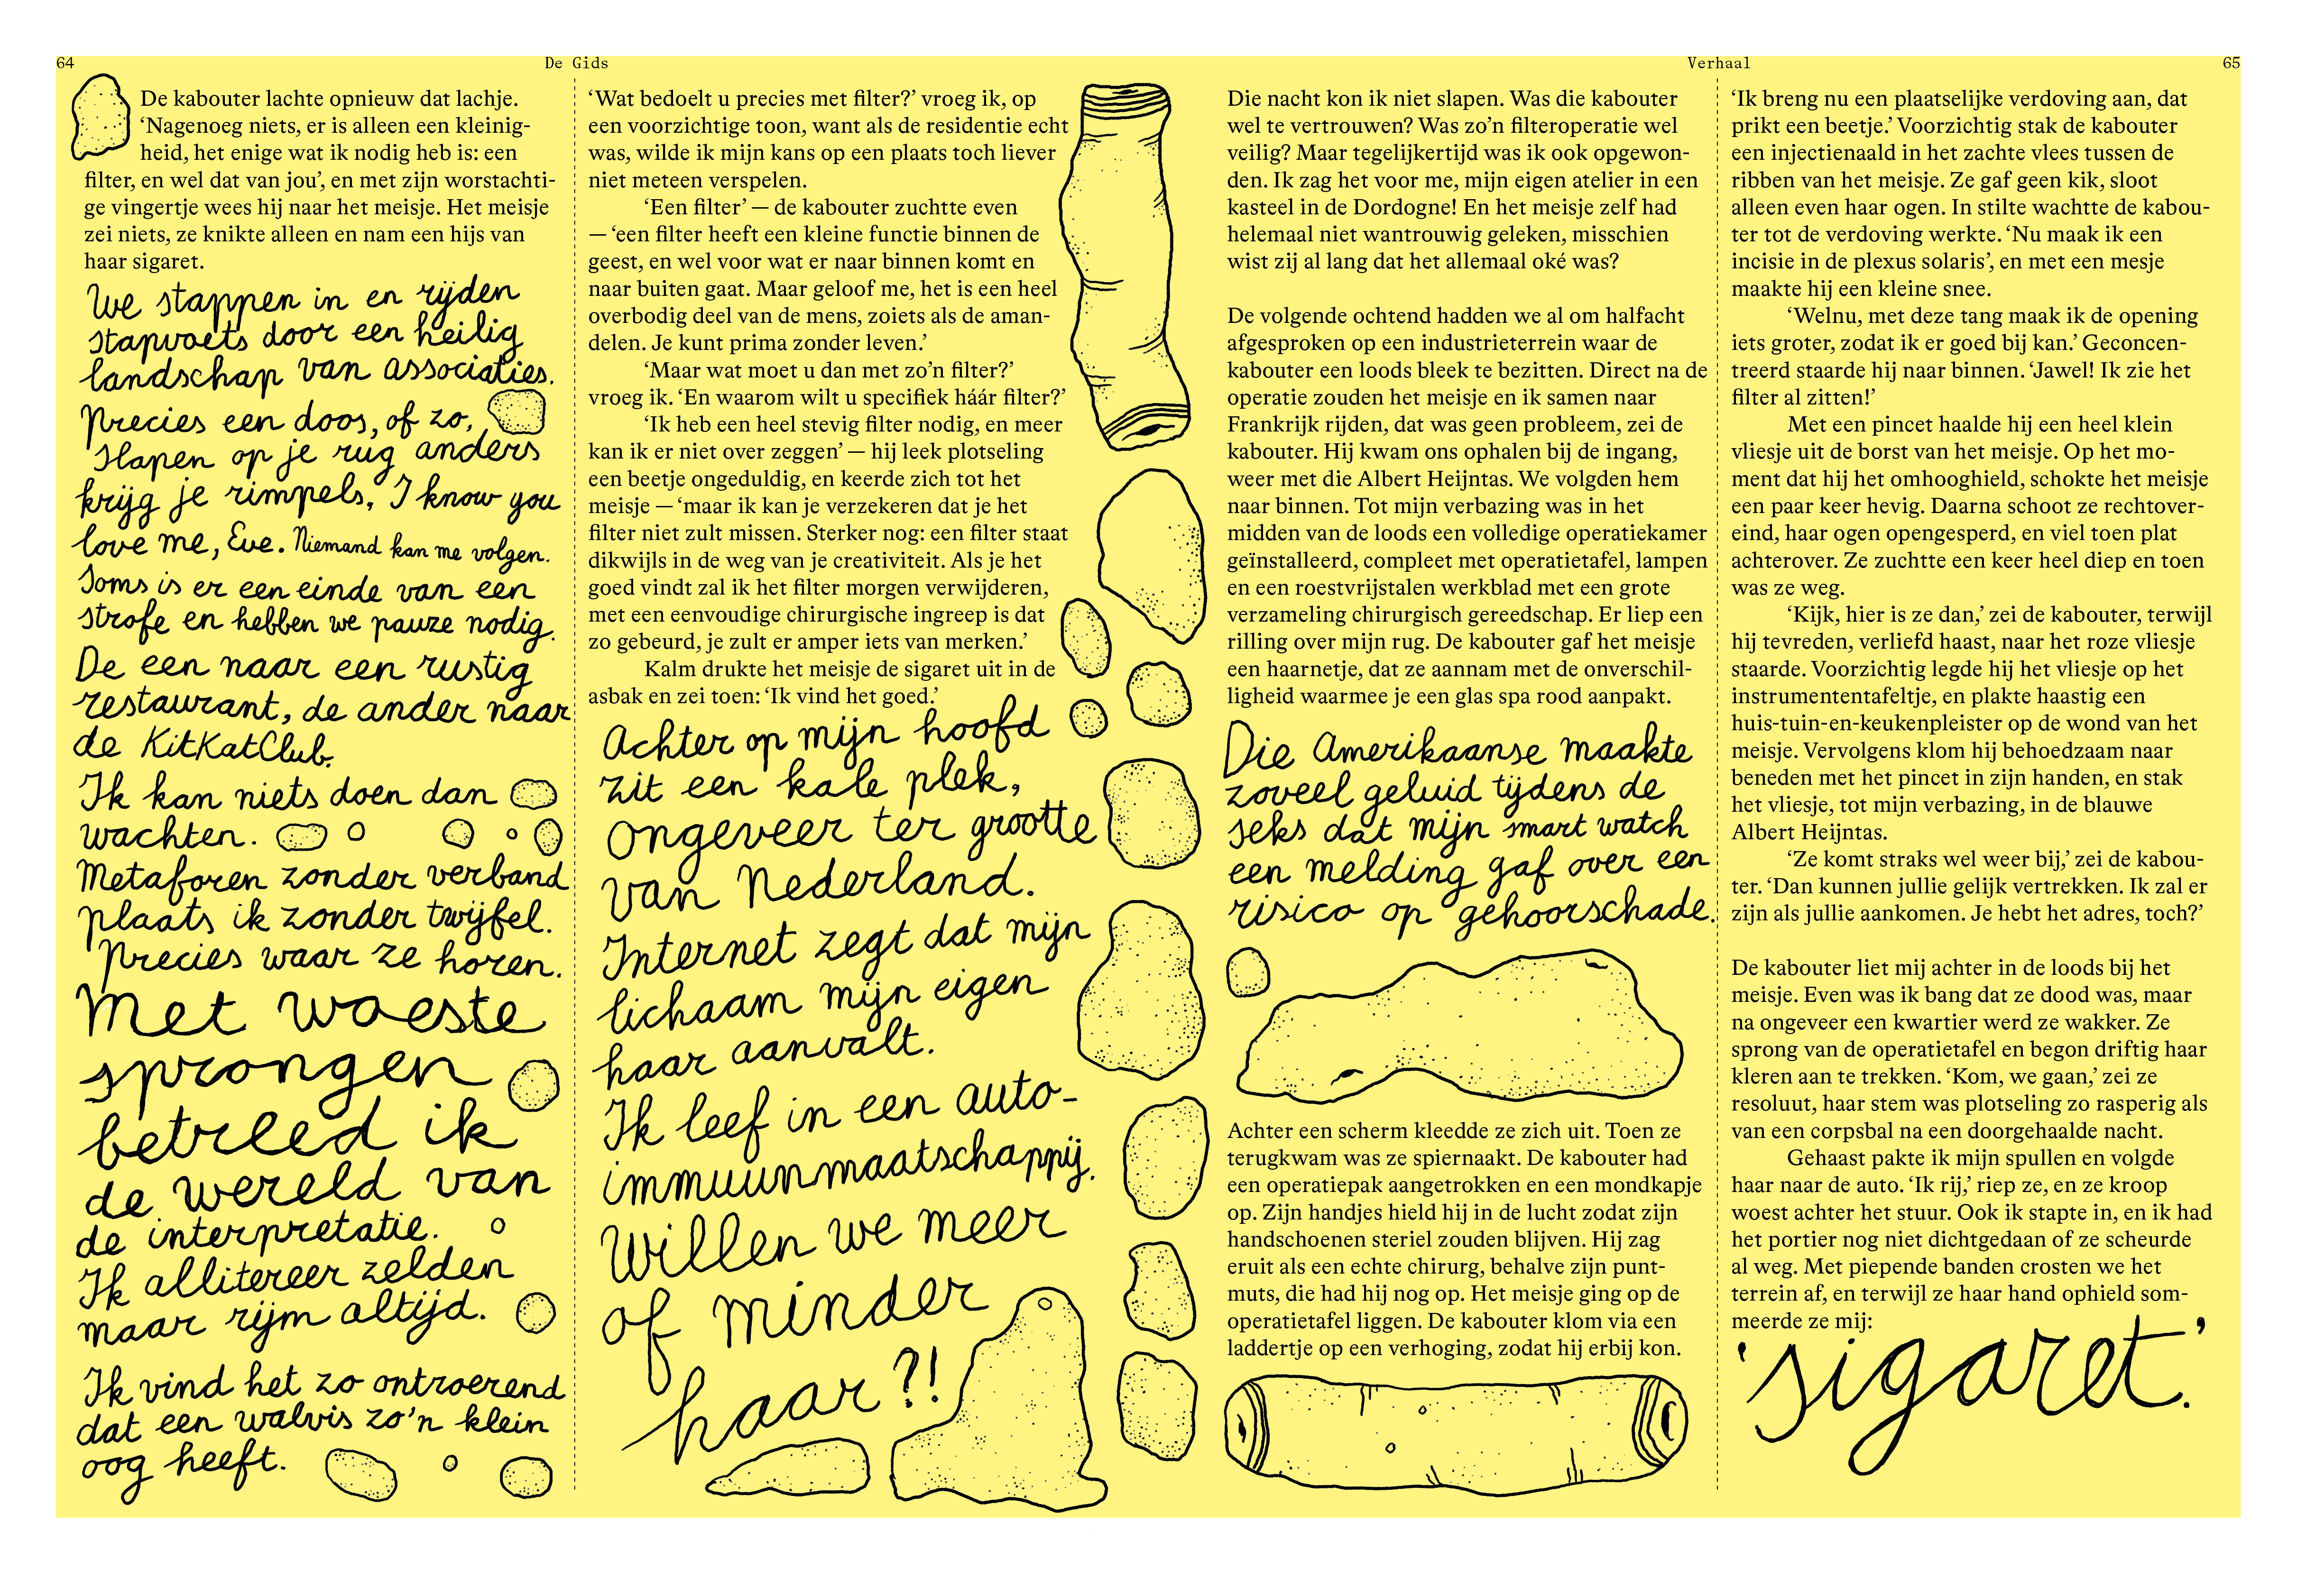 64
De Gids
De kabouter lachte opnieuw dat lachje.
‘Nagenoeg niets, er is alleen een kleinig-
heid, het enige wat ik nodig heb is: een
filter, en wel dat van jou’, en met zijn worstachti-
ge vingertje wees hij naar het meisje. Het meisje
zei niets, ze knikte alleen en nam een hijs van
haar sigaret.
We stappen in en rijden
stapvoets door een heilig
landschap van associaties.
Precies een doos, of zo,
slapen op je rug anders
krijg je rimpels, I know you
love me, Eve. Niemand kan me volgen.
Soms is er een einde van een
strofe en hebben we pauze nodig.
De een naar een rustig
restaurant, de ander naar
de KitKatClub.
Ik kan niets doen dan
wachten.
Metaforen zonder verband
plaats ik zonder twijfel.
Precies waar ze horen.
Met woeste
sprongen
betreed ik
de wereld van
de interpretatie.
Ik allitereer zelden
maar rijm altijd.
Ik vind het zo ontroerend
dat een walvis zo’n klein
oog heeft.
‘Wat bedoelt u precies met filter?’ vroeg ik, op
een voorzichtige toon, want als de residentie echt
was, wilde ik mijn kans op een plaats toch liever
niet meteen verspelen.
‘Een filter’ — de kabouter zuchtte even
— ‘een filter heeft een kleine functie binnen de
geest, en wel voor wat er naar binnen komt en
naar buiten gaat. Maar geloof me, het is een heel
overbodig deel van de mens, zoiets als de aman-
delen. Je kunt prima zonder leven.’
‘Maar wat moet u dan met zo’n filter?’
vroeg ik. ‘En waarom wilt u specifiek háár filter?’
‘Ik heb een heel stevig filter nodig, en meer
kan ik er niet over zeggen’ — hij leek plotseling
een beetje ongeduldig, en keerde zich tot het
meisje — ‘maar ik kan je verzekeren dat je het
filter niet zult missen. Sterker nog: een filter staat
dikwijls in de weg van je creativiteit. Als je het
goed vindt zal ik het filter morgen verwijderen,
met een eenvoudige chirurgische ingreep is dat
zo gebeurd, je zult er amper iets van merken.’
Kalm drukte het meisje de sigaret uit in de
asbak en zei toen: ‘Ik vind het goed.’
Achter op mijn hoofd
zit een kale plek,
ongeveer ter grootte
van Nederland.
Internet zegt dat mijn
lichaam mijn eigen
haar aanvalt.
Ik leef in een auto-
immuunmaatschappij.
Willen we meer
of minder
haar?!
Verhaal
65
Die nacht kon ik niet slapen. Was die kabouter
wel te vertrouwen? Was zo’n filteroperatie wel
veilig? Maar tegelijkertijd was ik ook opgewon-
den. Ik zag het voor me, mijn eigen atelier in een
kasteel in de Dordogne! En het meisje zelf had
helemaal niet wantrouwig geleken, misschien
wist zij al lang dat het allemaal oké was?
De volgende ochtend hadden we al om halfacht
afgesproken op een industrieterrein waar de
kabouter een loods bleek te bezitten. Direct na de
operatie zouden het meisje en ik samen naar
Frankrijk rijden, dat was geen probleem, zei de
kabouter. Hij kwam ons ophalen bij de ingang,
weer met die Albert Heijntas. We volgden hem
naar binnen. Tot mijn verbazing was in het
midden van de loods een volledige operatiekamer
geïnstalleerd, compleet met operatietafel, lampen
en een roestvrijstalen werkblad met een grote
verzameling chirurgisch gereedschap. Er liep een
rilling over mijn rug. De kabouter gaf het meisje
een haarnetje, dat ze aannam met de onverschil-
ligheid waarmee je een glas spa rood aanpakt.
Die Amerikaanse maakte
zoveel geluid tijdens de
seks dat mijn smart watch
een melding gaf over een
risico op gehoorschade.
Achter een scherm kleedde ze zich uit. Toen ze
terugkwam was ze spiernaakt. De kabouter had
een operatiepak aangetrokken en een mondkapje
op. Zijn handjes hield hij in de lucht zodat zijn
handschoenen steriel zouden blijven. Hij zag
eruit als een echte chirurg, behalve zijn punt-
muts, die had hij nog op. Het meisje ging op de
operatietafel liggen. De kabouter klom via een
laddertje op een verhoging, zodat hij erbij kon.
‘Ik breng nu een plaatselijke verdoving aan, dat
prikt een beetje.’ Voorzichtig stak de kabouter
een injectienaald in het zachte vlees tussen de
ribben van het meisje. Ze gaf geen kik, sloot
alleen even haar ogen. In stilte wachtte de kabou-
ter tot de verdoving werkte. ‘Nu maak ik een
incisie in de plexus solaris’, en met een mesje
maakte hij een kleine snee.
‘Welnu, met deze tang maak ik de opening
iets groter, zodat ik er goed bij kan.’ Geconcen-
treerd staarde hij naar binnen. ‘Jawel! Ik zie het
filter al zitten!’
Met een pincet haalde hij een heel klein
vliesje uit de borst van het meisje. Op het mo-
ment dat hij het omhooghield, schokte het meisje
een paar keer hevig. Daarna schoot ze rechtover-
eind, haar ogen opengesperd, en viel toen plat
achterover. Ze zuchtte een keer heel diep en toen
was ze weg.
‘Kijk, hier is ze dan,’ zei de kabouter, terwijl
hij tevreden, verliefd haast, naar het roze vliesje
staarde. Voorzichtig legde hij het vliesje op het
instrumententafeltje, en plakte haastig een
huis-tuin-en-keukenpleister op de wond van het
meisje. Vervolgens klom hij behoedzaam naar
beneden met het pincet in zijn handen, en stak
het vliesje, tot mijn verbazing, in de blauwe
Albert Heijntas.
‘Ze komt straks wel weer bij,’ zei de kabou-
ter. ‘Dan kunnen jullie gelijk vertrekken. Ik zal er
zijn als jullie aankomen. Je hebt het adres, toch?’
De kabouter liet mij achter in de loods bij het
meisje. Even was ik bang dat ze dood was, maar
na ongeveer een kwartier werd ze wakker. Ze
sprong van de operatietafel en begon driftig haar
kleren aan te trekken. ‘Kom, we gaan,’ zei ze
resoluut, haar stem was plotseling zo rasperig als
van een corpsbal na een doorgehaalde nacht.
Gehaast pakte ik mijn spullen en volgde
haar naar de auto. ‘Ik rij,’ riep ze, en ze kroop
woest achter het stuur. Ook ik stapte in, en ik had
het portier nog niet dichtgedaan of ze scheurde
al weg. Met piepende banden crosten we het
terrein af, en terwijl ze haar hand ophield som-
meerde ze mij:
‘sigaret.’